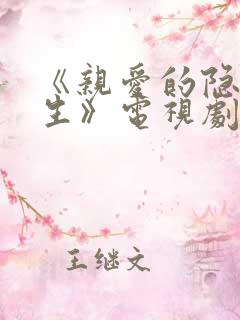 《親愛的隐
生》電視劇
王继文